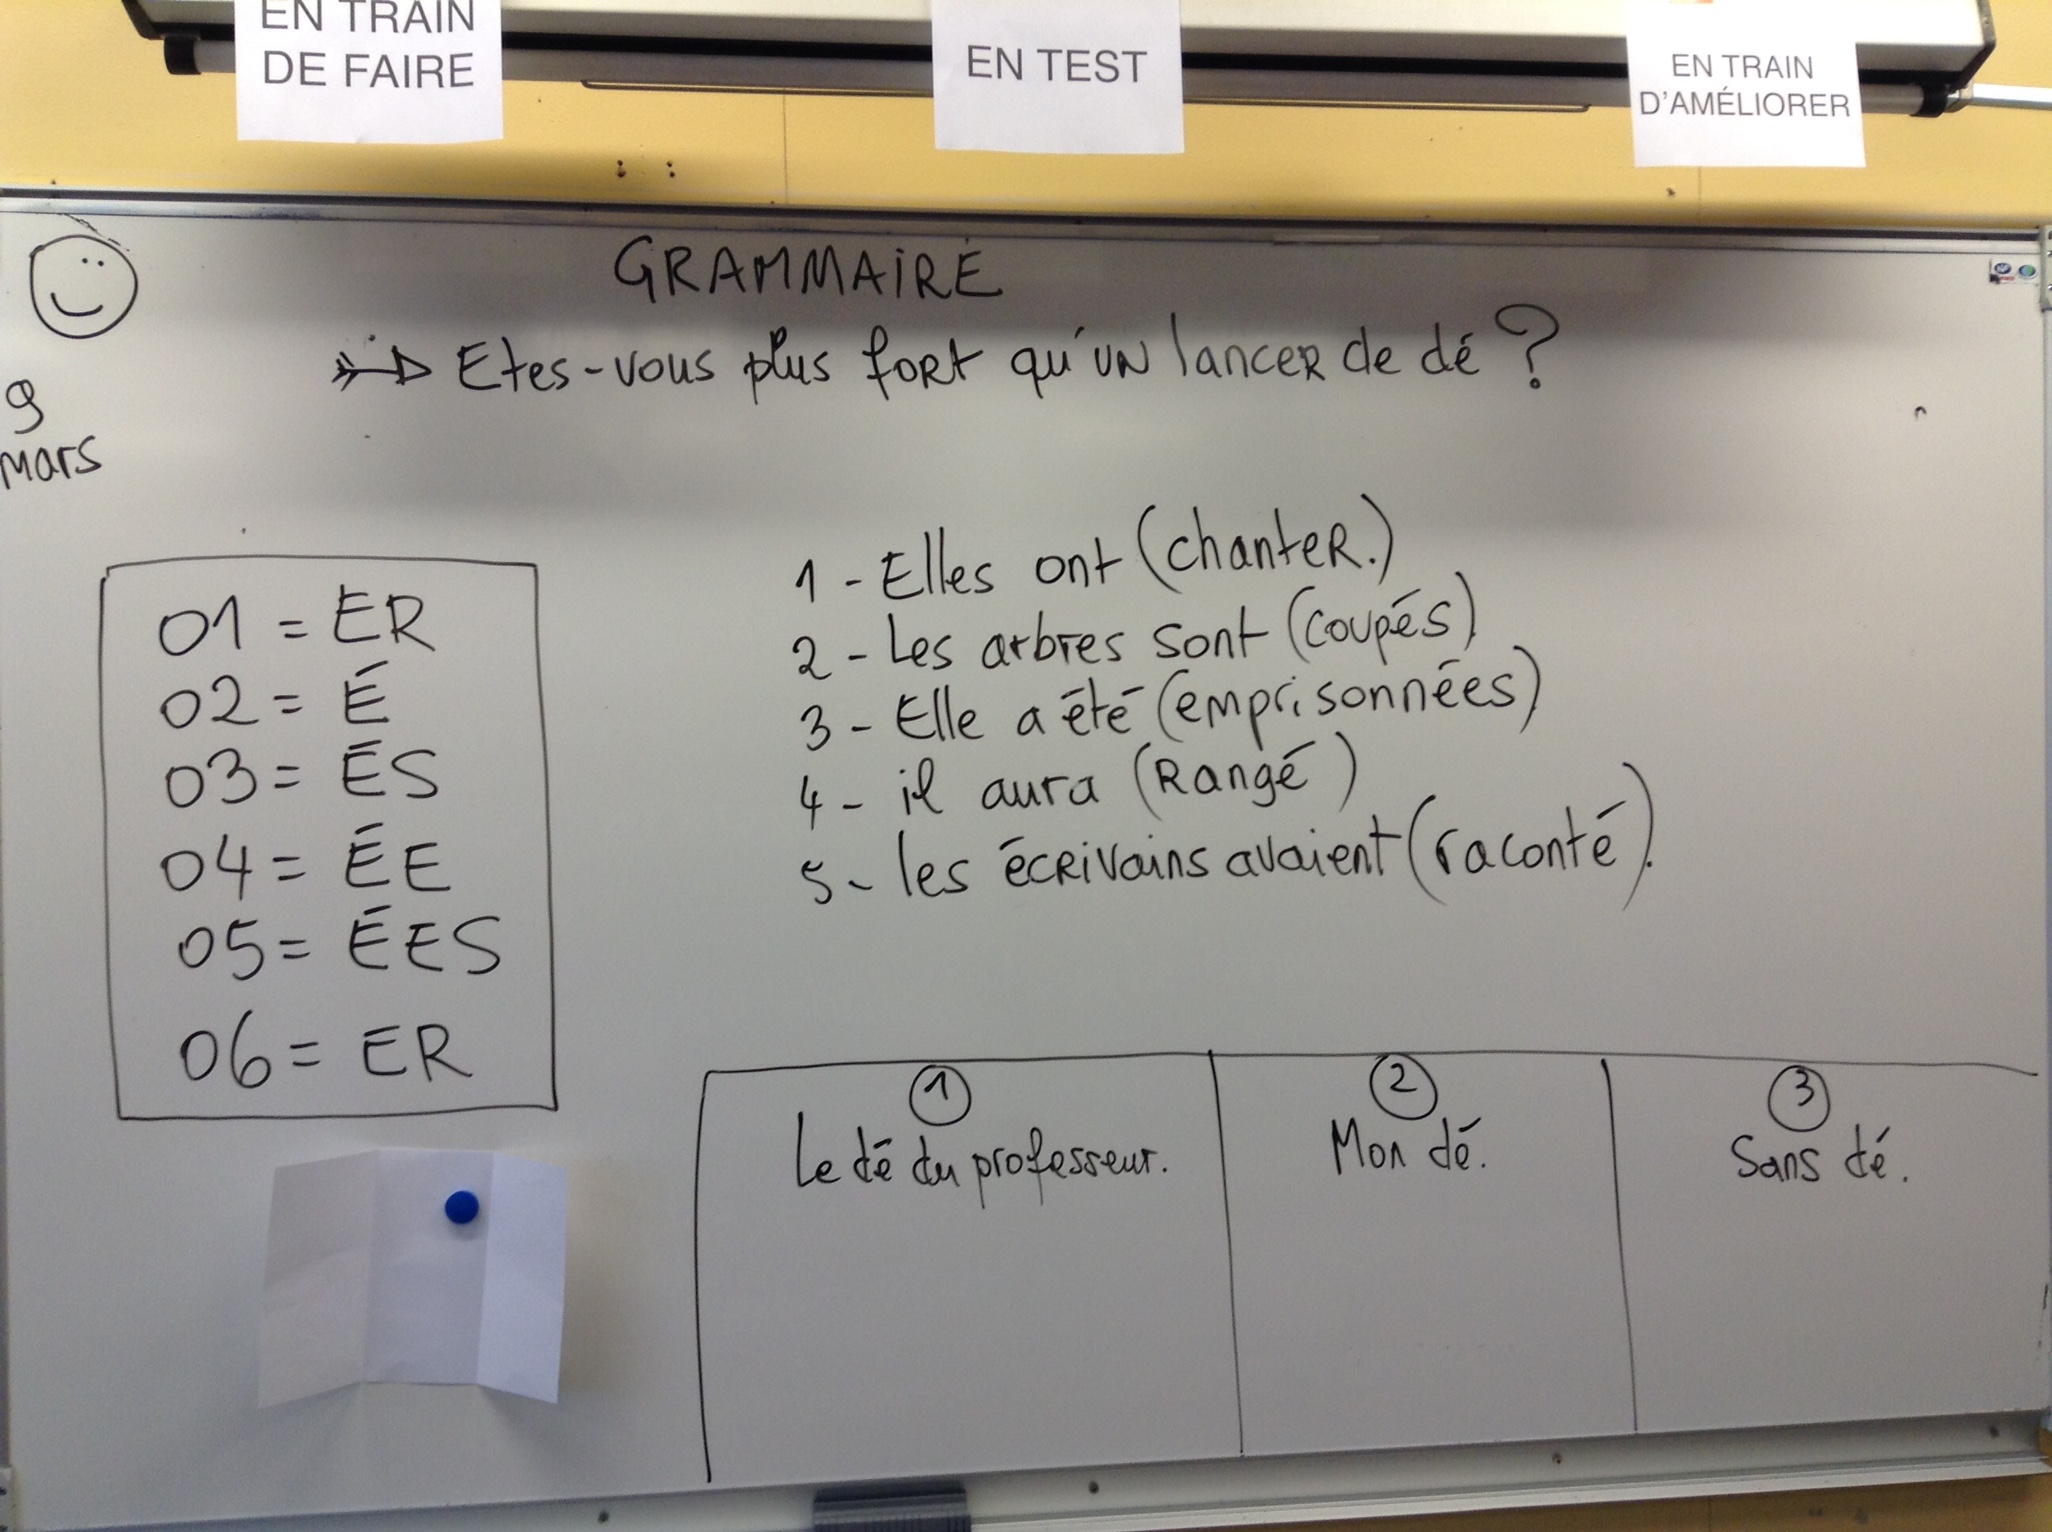 EN TRAIN
DE FAIRE
EN TEST
EN TRAIN
D'AMÉLIORER
GRAMMAIRE
Etes-vous plus fort qu'un lancer de dé ?
9
mars
01 = ER
02 = É
03 = ÉS
04 = ÉE
05 = ÉES
06 = ER
1 - Elles ont (chanter.)
2 - Les arbres sont (coupés).
3 - Elle a été (emprisonnées)
4 - il aura (Rangé)
5 - les écrivains avaient (raconté).
1
Le dé du professeur.
2
Mon dé.
3
Sans dé.